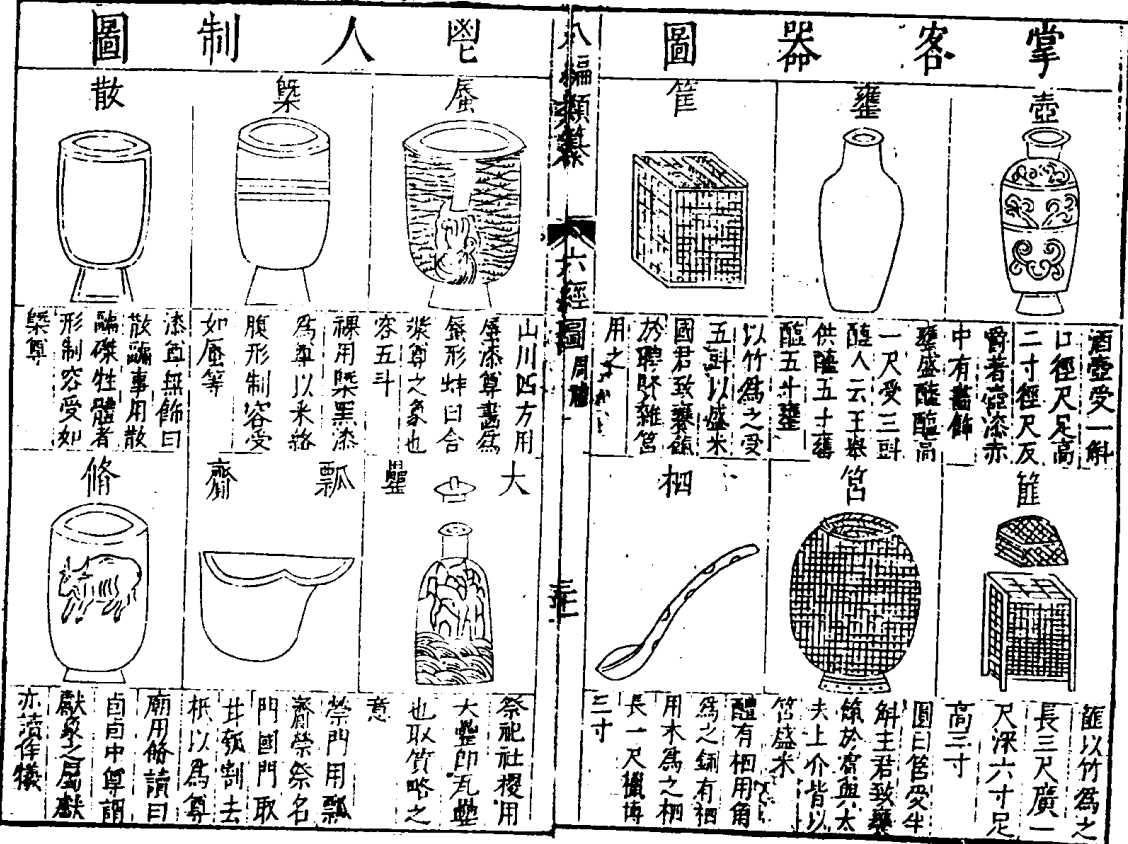 掌客器圖
壺
酒壺受一斛
口徑尺足高
二寸徑尺反
爵著壺漆赤
中有畫飾
甕
甕盛醯醢高
一尺受三㪷
醢人云王舉
供醢五寸甕
醢五斗甕
筐
以竹爲之受
五㪷以盛米
國君致饔餼
於聘賢雜筥
用之
篚
篚以竹爲之
長三尺廣一
尺深六寸足
高三寸
筥
圓曰筥受半
斛主君致饔
餼於賓與太
夫上介皆以
筥盛米
柶
醴有柶用角
爲之鉶有柶
用木爲之柶
長一尺櫼博
三寸
八編類纂
六經圖 周禮
鬯人制圖
蜃
山川四方用
蜃漆尊畫爲
蜃形蚌曰合
漿尊之象也
容五斗
槩
祼用槩黑漆
爲尊以朱絡
腹形制容受
如蜃等
散
漆尊無飾曰
散疈事用散
疈磔牲體者
形制容受如
槩尊
大罍
祭祀社稷用
大罍即瓦罍
也取質略之
意
瓢齎
禜門用瓢
齎禜祭名
門國門取
甘瓠割去
柢以爲尊
脩
廟用脩讀曰
卣卣中尊謂
獻象之屬獻
亦讀作犧